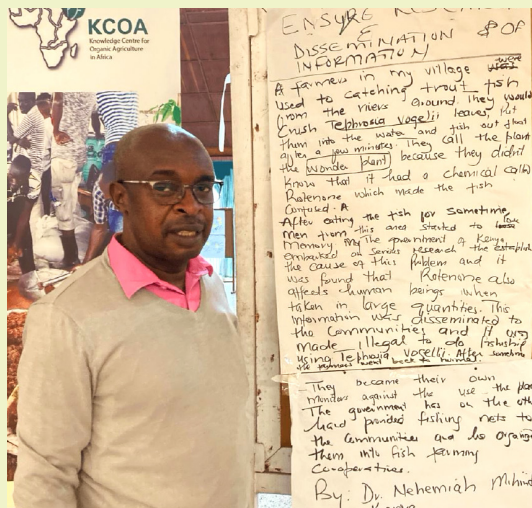 KCOA
Knowledge Centre For
Organic Agriculture
in Africa
ENSURE
&
DISSEMINATION OF
INFORMATION
A farmers in my village were
used to catching trout fish
from the rivers around. They would
Crush Tephrosia vogelii leaves, put
them into the water and fish out fish
after a few minutes. They call the plant
the wonder plant because they didn't
know that it had a chemical
Rotenone which made the fish
Confused.
After eating the fish for sometime,
men from this area started to
memory. The government of Kenya
embarked on serious research to establish
the cause of this problem and it
was found that Rotenone also
affects human beings when
taken in large quantities. This
information was disseminated to
the Communities and it was
made illegal to do
using Tephrosia vogelii. After sometime
the went back to normal.
They became their own
monitors against the use the
The government has on the
hand provided fishing nets to
the communities and also
them into fish farming
Co-operatives.
By: Dr. Nehemiah
Kenya